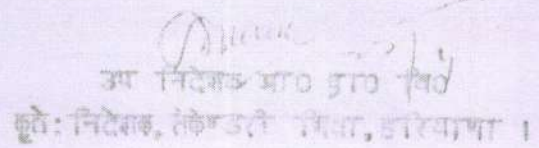 उप निदेशक भा० प्रा० वि०
कृते: निदेशक, सेकेण्डरी शिक्षा, हरियाणा ।